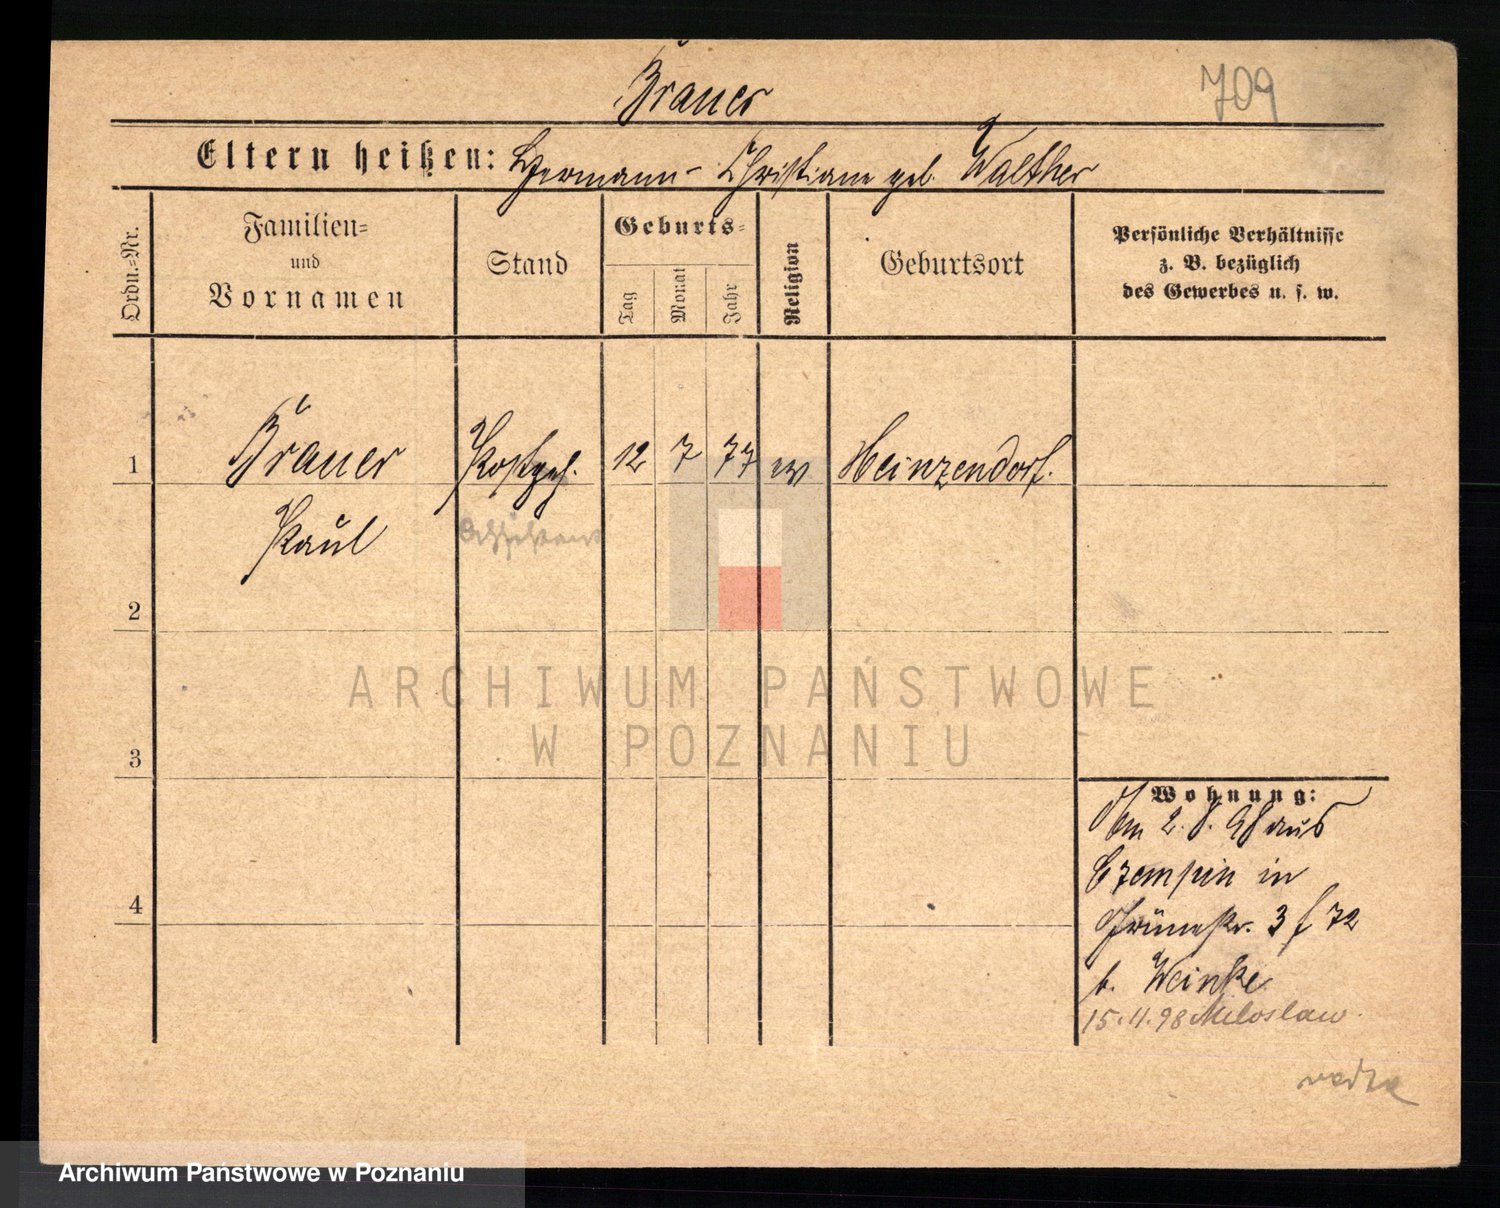 Brauer
709
Eltern heißen: Hermann - Christiane geb. Walther
Ordn.-Nr.
Familien-
und
Vornamen
Stand
Geburts-
Tag
Monat
Jahr
Religion
Geburtsort
Persönliche Verhältnisse
z. B. bezüglich
des Gewerbes u. s. w.
1 Brauer Postgeh. 12 7 77 ev Heinzendorf.
Paul
2
3
4
Wohnung:
Am 2. 8. 98 aus
Czempin in
Grünestr. 3 f 72
b. Weinke
15.11.98 Miloslaw.
ARCHIWUM PAŃSTWOWE
W POZNANIU
Archiwum Państwowe w Poznaniu